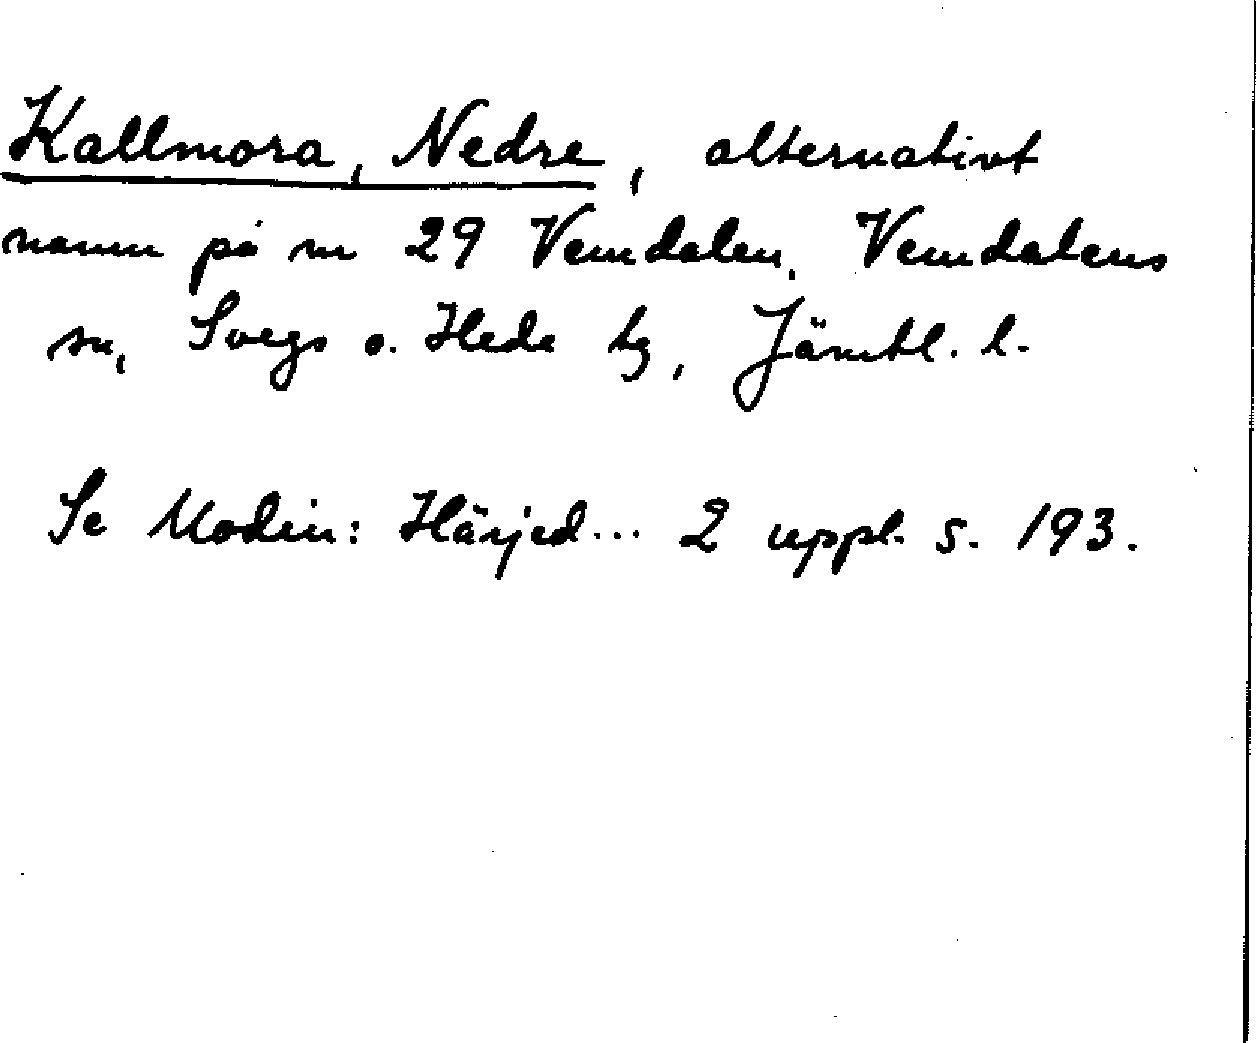 Kallmora, Nedre, alternativt
namn på nr 29 Vemdalen, Vemdalens
sn, Svegs o. Hede tg, Jämtl. l.
Se Modin: Härjed... 2 uppl. s. 193.